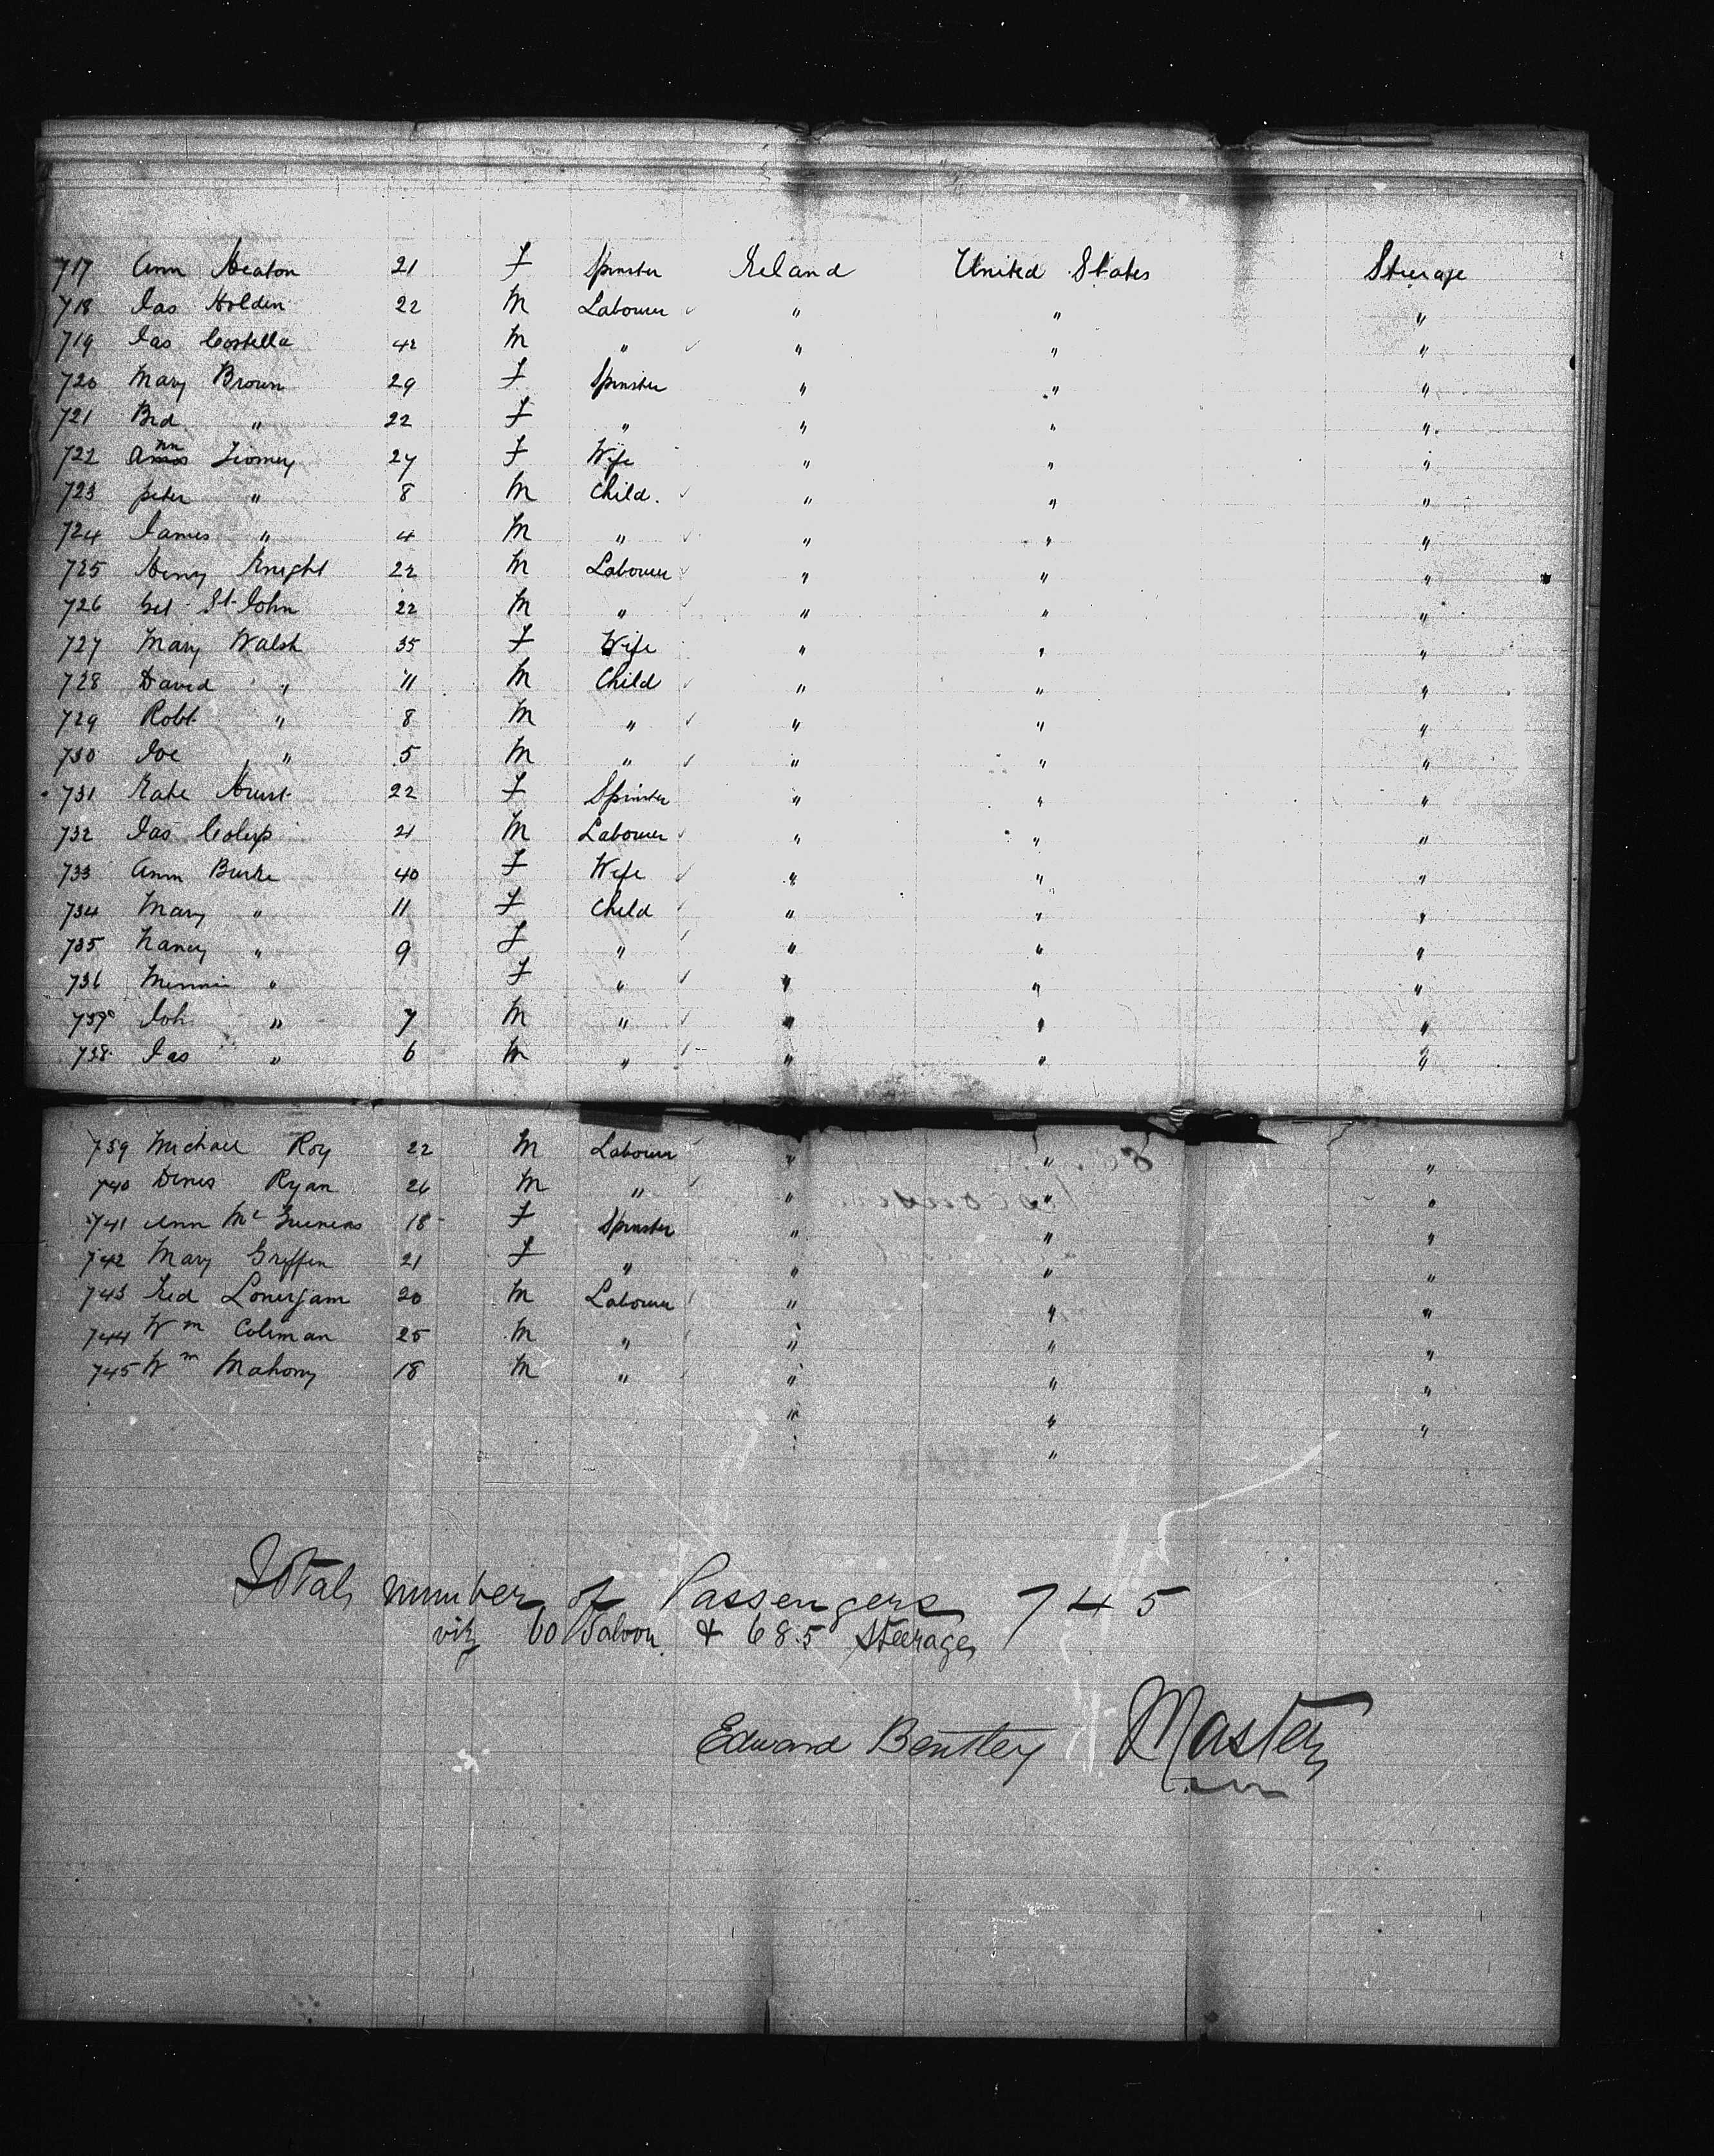 717 Ann Heaton 21 F Spinster Ireland United States Steerage
718 Jas Holden 22 M Labourer " " "
719 Jas Costella 42 M " " " "
720 Mary Brown 29 F Spinster " " "
721 Brd " 22 F " " " "
722 Ann 27 F Wife " " "
723 Peter " 8 M Child " " "
724 James " 4 M " " " "
725 Henry Knight 22 M Labourer " " "
726 St. John 22 M " " " "
727 Mary Walsh 35 F Wife " " "
728 David " 11 M Child " " "
729 Robt " 8 M " " " "
730 Joe " 5 M " " " "
731 Kate Hurst 22 F Spinster " " "
732 Jas 21 M Labourer " " "
733 Ann Burke 40 F Wife " " "
734 Mary " 11 F Child " " "
735 Nancy " 9 F " " " "
736 Minnie " F " " " "
737 Joh " 7 M " " " "
738 Jas " 6 M " " " "
739 Michael Roy 22 M Labourer " " "
740 Denis Ryan 26 M " " " "
741 Ann Mc 18 F Spinster " " "
742 Mary Griffen 21 F " " " "
743 Lonerjam 20 M Labourer " " "
744 Wm Coleman 25 M " " " "
745 Wm Mahony 18 M " " " "
" " "
"
Total number of Passengers 745
viz 60 Saloon & 685 Steerage
Edward Bentley Master